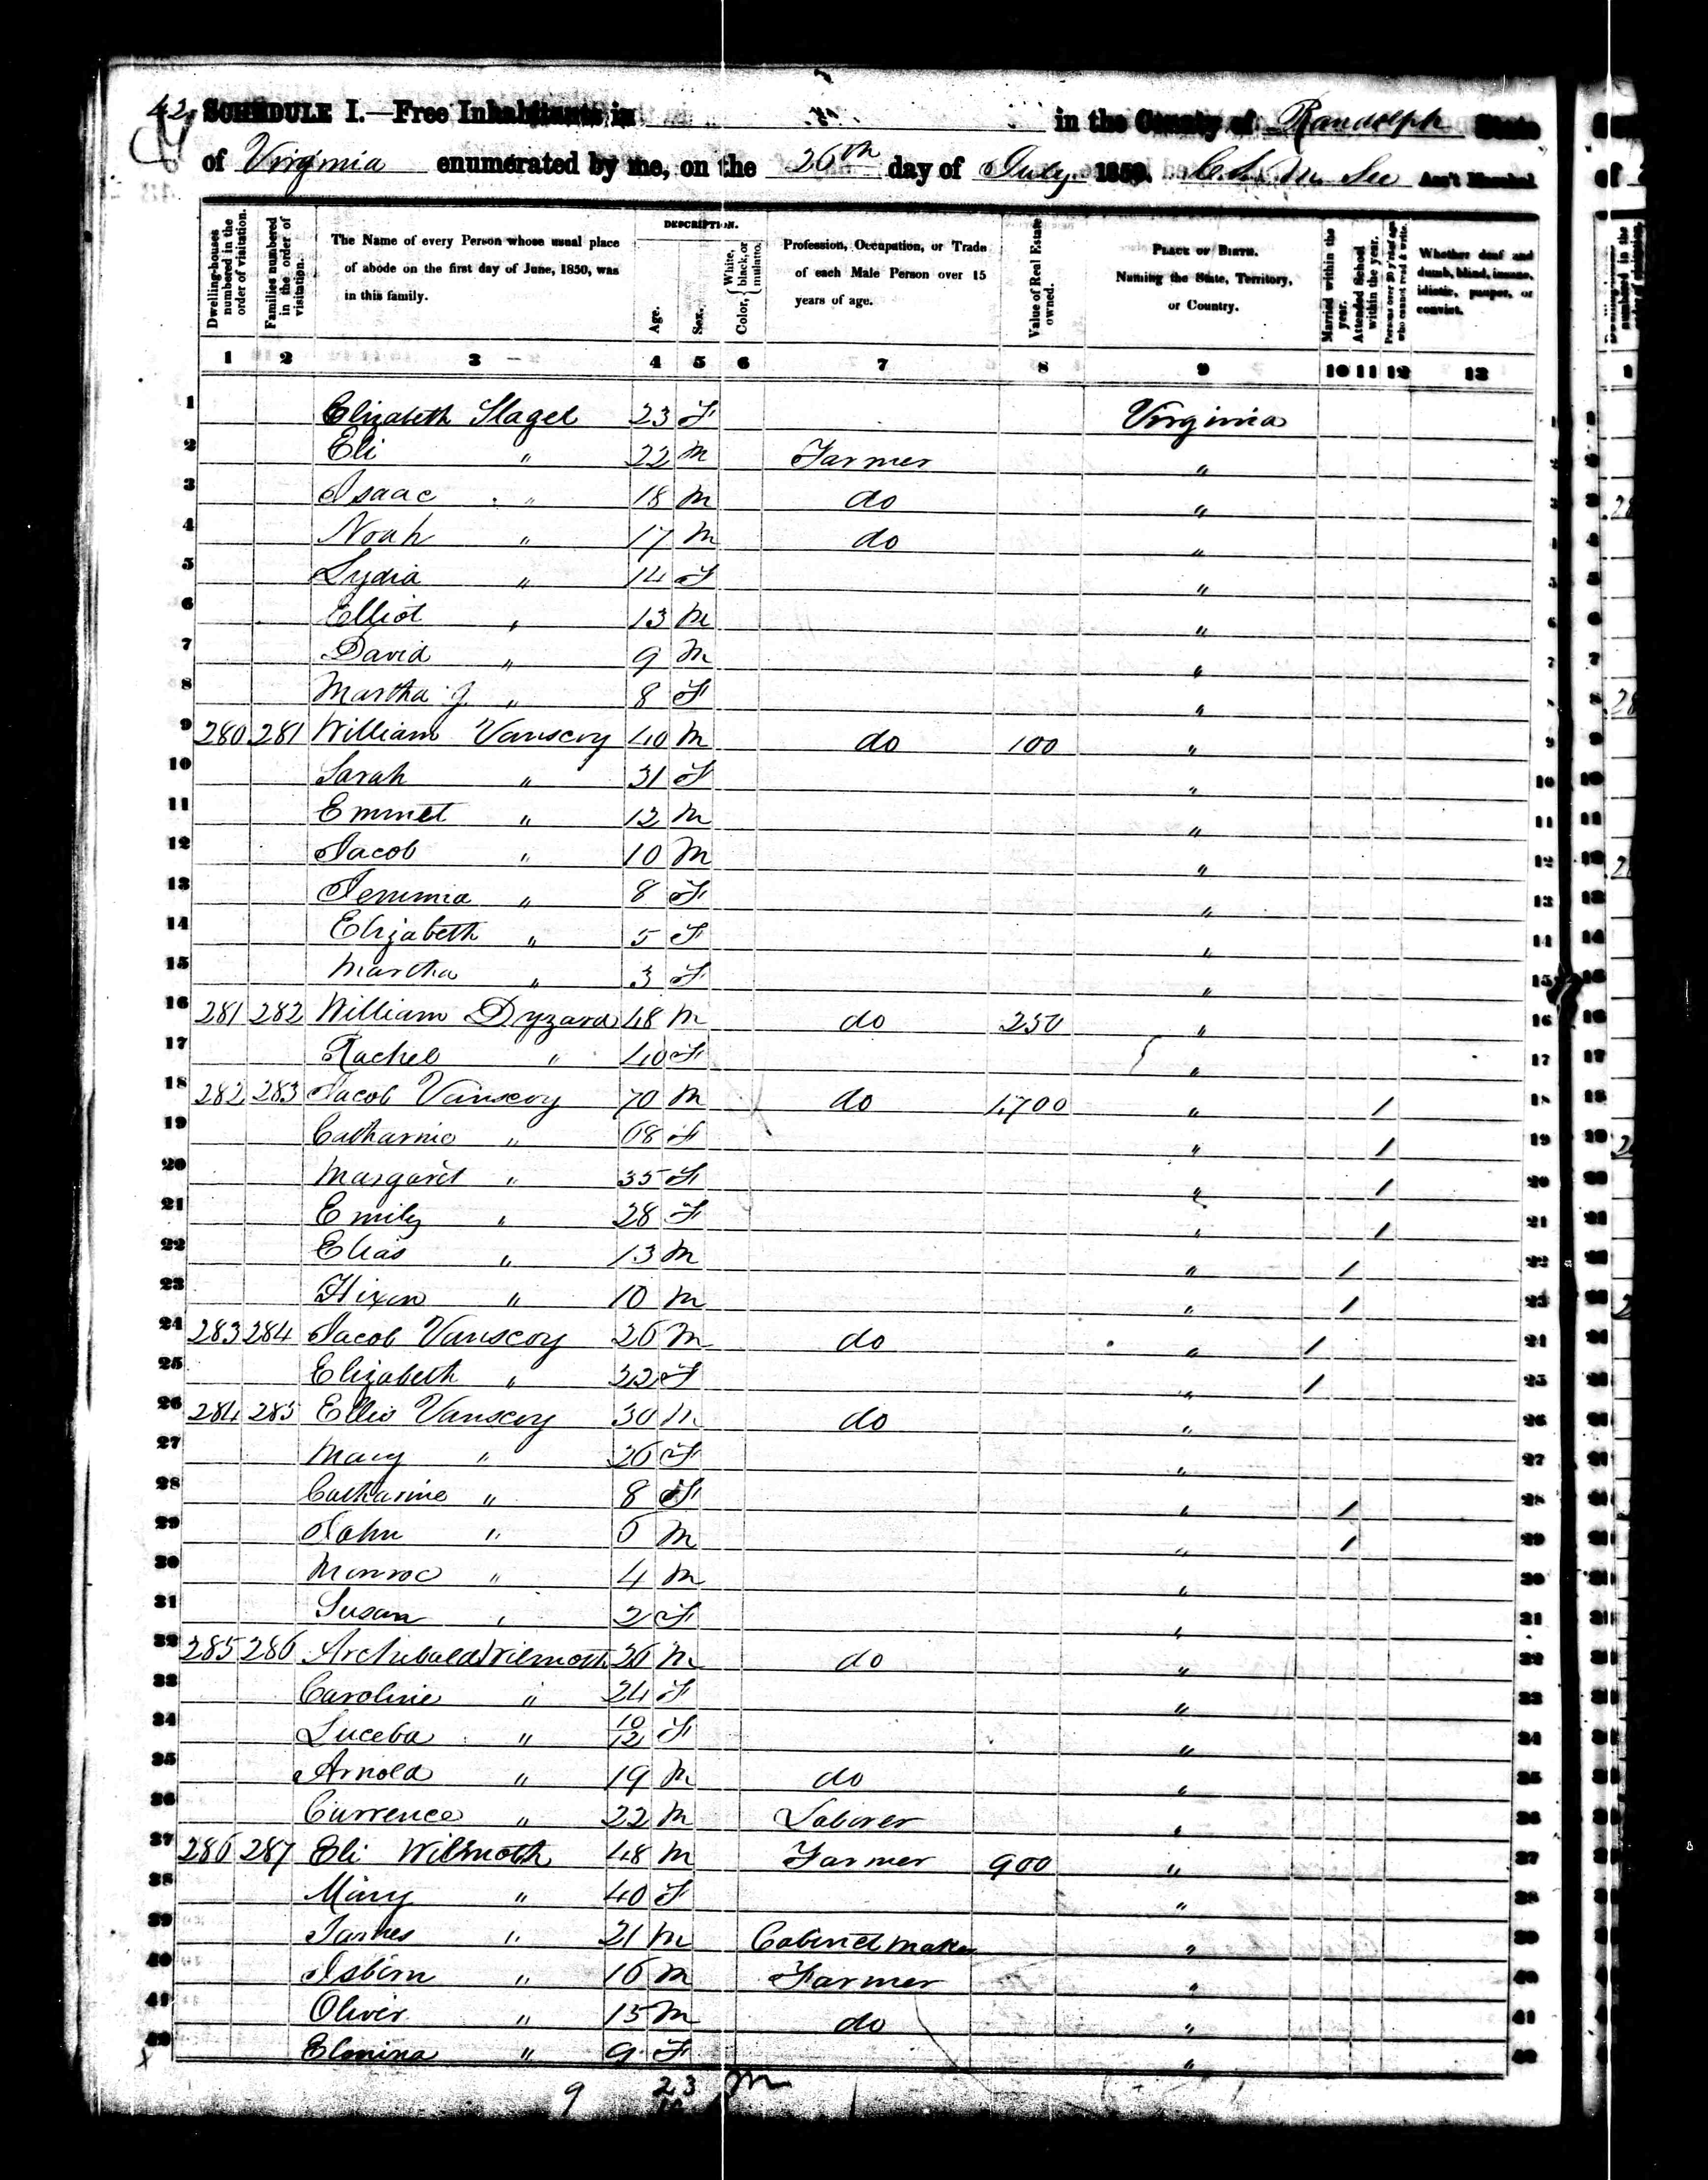 42
SCHEDULE I.—Free Inhabitants in in the County of Randolph State
of Virginia enumerated by me, on the 26th day of July 1850. Ass't Marshal
Dwelling-houses numbered in the order of visitation.
Families numbered in the order of visitation.
The Name of every Person whose usual place of abode on the first day of June, 1850, was in this family.
DESCRIPTION.
Age.
Sex.
Color, { White, black, or mulatto.
Profession, Occupation, or Trade of each Male Person over 15 years of age.
Value of Real Estate owned.
PLACE OF BIRTH. Naming the State, Territory, or Country.
Married within the year.
Attended School within the year.
Persons over 20 y'rs of age who cannot read & write.
Whether deaf and dumb, blind, insane, idiotic, pauper, or convict.
1 2 3 4 5 6 7 8 9 10 11 12 13
1 Elizabeth Slagel 23 F Virginia 1
2 Eli " 22 M Farmer " 2
3 Isaac " 18 M do " 3
4 Noah " 17 M do " 4
5 Lydia " 14 F " 5
6 Elliot " 13 M " 6
7 David " 9 M " 7
8 Martha J. " 8 F " 8
9 280 281 William Vanscoy 40 M do 100 " 9
10 Sarah " 31 F " 10
11 Emmet " 12 M " 11
12 Jacob " 10 M " 12
13 Jemimia " 8 F " 13
14 Elizabeth " 5 F " 14
15 Martha " 3 F " 15
16 281 282 William Dyzard 48 M do 250 " 16
17 Rachel " 40 F " 17
18 282 283 Jacob Vanscoy 70 M do 1,700 " / 18
19 Catharine " 68 F " / 19
20 Margaret " 35 F " / 20
21 Emily " 28 F " / 21
22 Elias " 13 M " / 22
23 Hixon " 10 M " / 23
24 283 284 Jacob Vanscoy 26 M do " / 24
25 Elizabeth " 22 F " / 25
26 284 285 Ellis Vanscoy 30 M do " 26
27 Mary " 26 F " 27
28 Catharine " 8 F " / 28
29 John " 6 M " / 29
30 Monroe " 4 M " 30
31 Susan " 2 F " 31
32 285 286 Archibald Wilmoth 26 M do " 32
33 Caroline " 24 F " 33
34 Luceba " 10/12 F " 34
35 Arnold " 19 M do " 35
36 Currence " 22 M Laborer " 36
37 286 287 Eli Wilmoth 48 M Farmer 900 " 37
38 Mary " 40 F " 38
39 James " 21 M Cabinet maker " 39
40 Isbern " 16 M Farmer " 40
41 Oliver " 15 M do " 41
42 Elmina " 9 F " 42
9 23 M